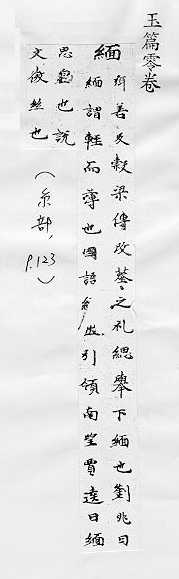 玉篇零卷
緬 弭善反穀梁傳改葬之礼緦舉下緬也劉兆曰
緬謂輕而薄也國語緬然引領南望賈逵曰緬
思皃也說
文微絲也
(糸部, p.123)